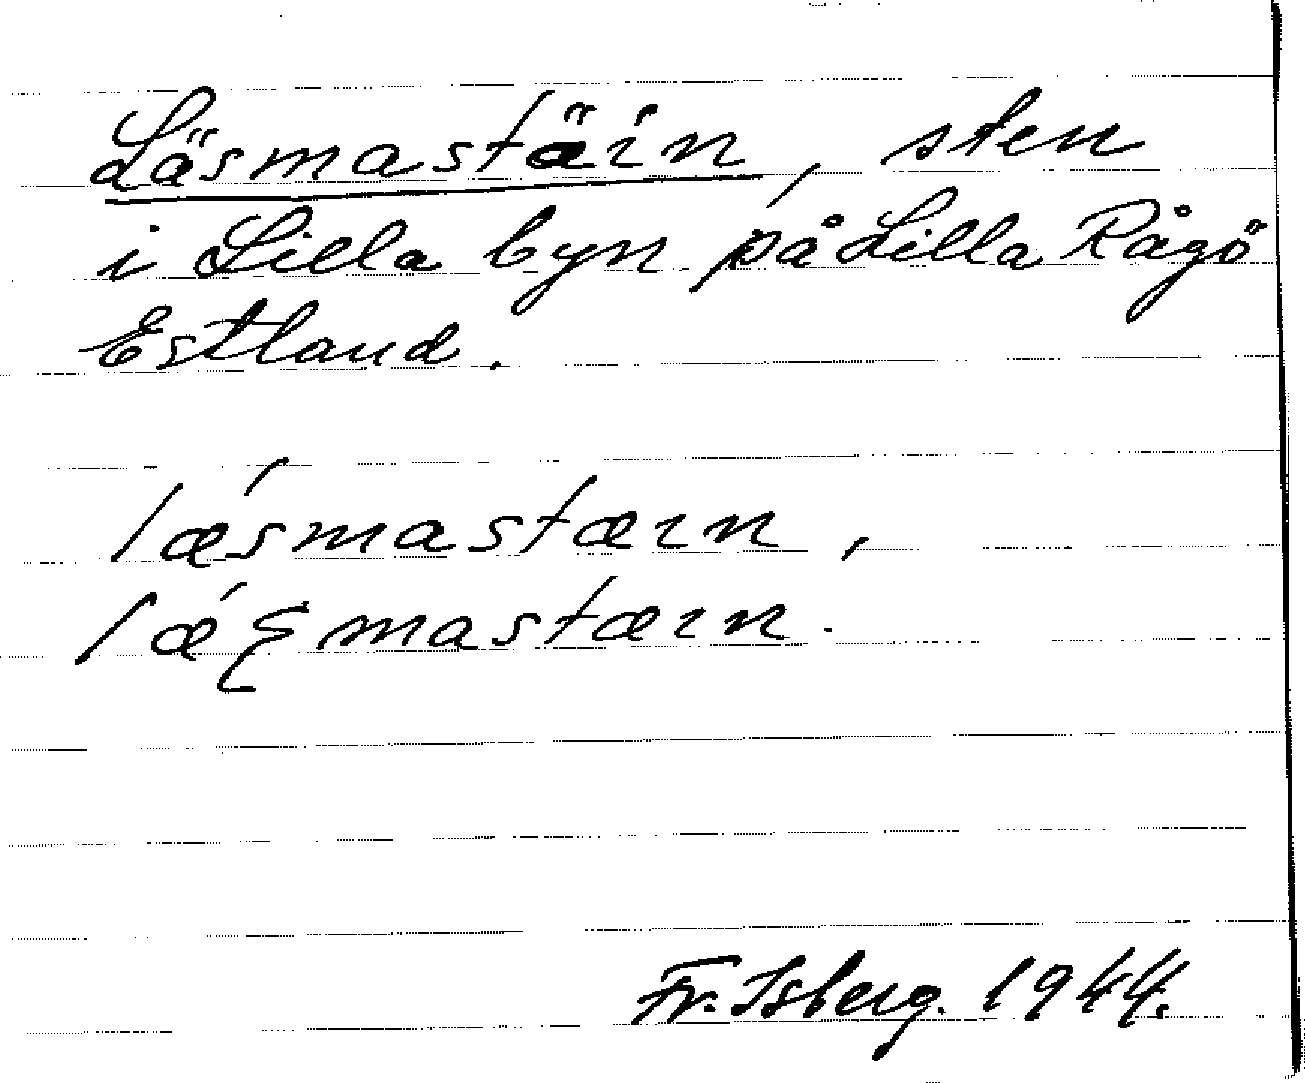 Läsmastäin, sten
i Lilla byn på Lilla Rågö
Estland.
læ´smastæın,
læ´ꞩmastæın.
Fr. Isberg. 1944.